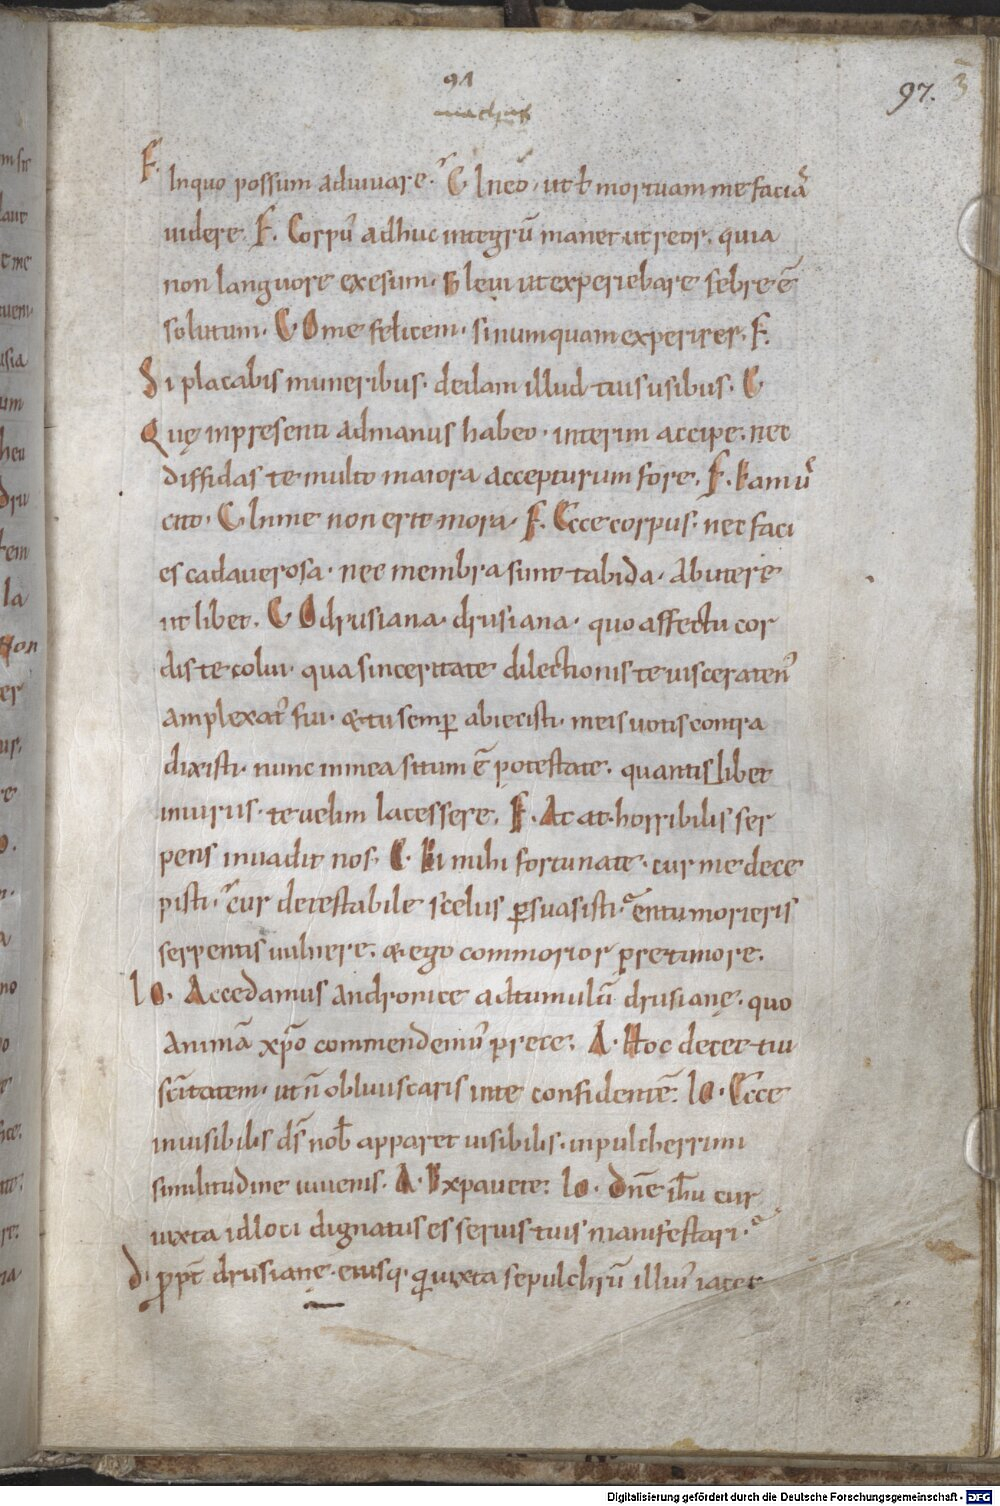 91
97. 3
F. Inquo possum adiuuare. C In eo, ut t mortuam me faciā
uidere. F. Corpꝰ adhuc integrū manet ut reor, quia
non languore exesum. s leui ut experiebare febre ē
solutum. C O me felicem. si numquam experireris. F.
Si placabis muneribus. dedam illud tuis usibus. C
Quę inpresenti admanus habeo. interim accipe; nec
diffidas te multo maiora accepturum fore. F. Eamꝰ
cito. C In me non erit mora. F. Ecce corpus. nec faci
es cadauerosa. nec membra sunt tabida. Abutere
ut libet. C O drusiana. drusiana. quo affectu cor
dis te colui. qua sinceritate dilectionis te uisceratenꝰ
amplexatꝰ fui. & tu semꝑ abiecisti. meis uotis contra
dixisti. nunc in mea situm ē potestate. quantislibet
iniuriis te uelim lacessere. F. At at. horribilis ser
pens inuadit nos. C. Ei mihi fortunate. cur me dece
pisti. cur detestabile scelus ꝑsuasisti. en tu morieris
serpentis uulnere. & ego commorior pre timore.
Io. Accedamus andronice ad tumulū drusianę. quo
animā xp̄o commendemꝰ prece. A. Hoc decet tui
sc̄itatem. ut n̄ obliuiscaris in te confidentē. Io. Ecce
inuisibilis ds̄ nob̄ apparet uisibilis. in pulcherrimi
similitudine iuuenis. A. Expauete. Io. Dn̄e ih̄u cur
iuxta id loci dignatus es seruis tuis manifestari.
D. ꝓpt̄ drusianę. eiusq. qui iuxta sepulchrū illiꝰ iacet
Digitalisierung gefördert durch die Deutsche Forschungsgemeinschaft - DFG